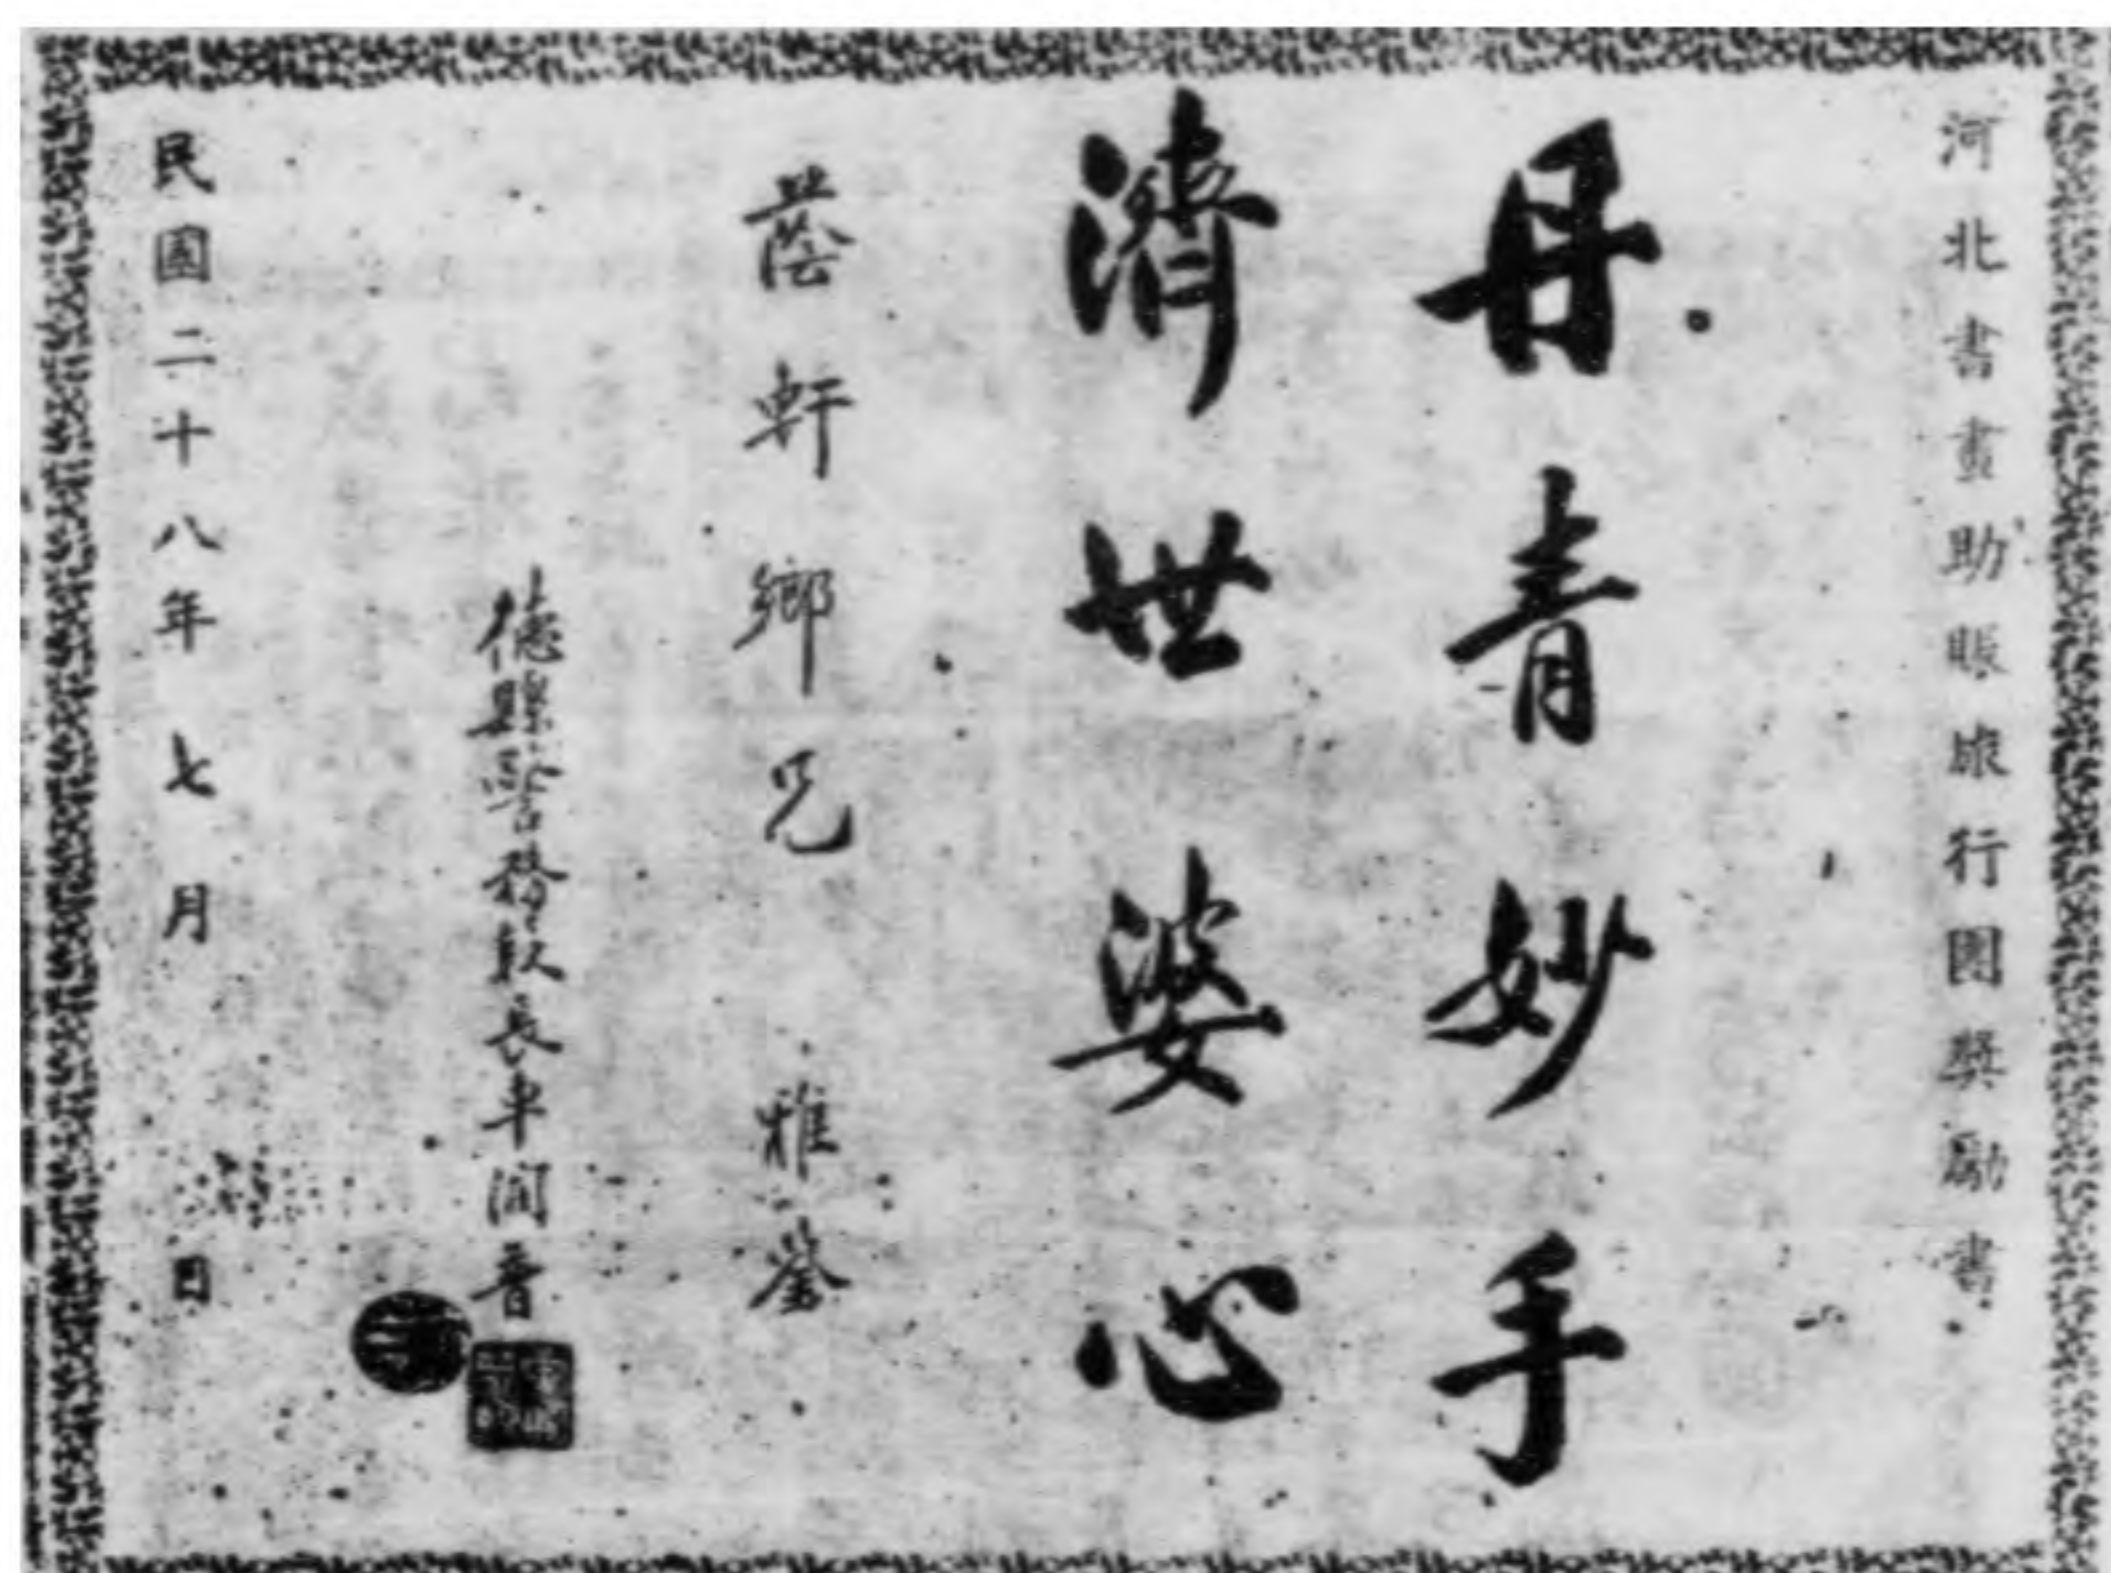 河北書畫助賑旅行團獎勵書
丹青妙手
濟世婆心
蔭軒鄉兄 雅鑒
德縣警務段長車潤音
民國二十八年七月 日